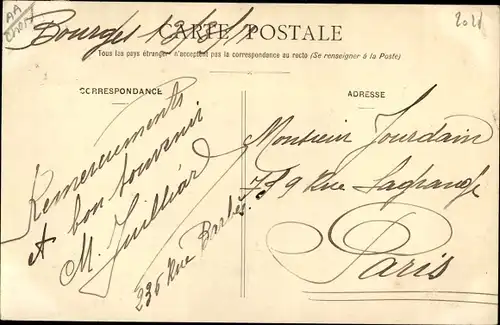 Bourges
CARTE POSTALE
Tous les pays étranger n'acceptent pas la correspondance au recto (Se renseigner à la Poste)
CORRESPONDANCE
Remerciements
et bon souvenir
M. Juilliard
236 Rue Barbès
ADRESSE
Monsieur Jourdain
9 Rue Lagrange
Paris